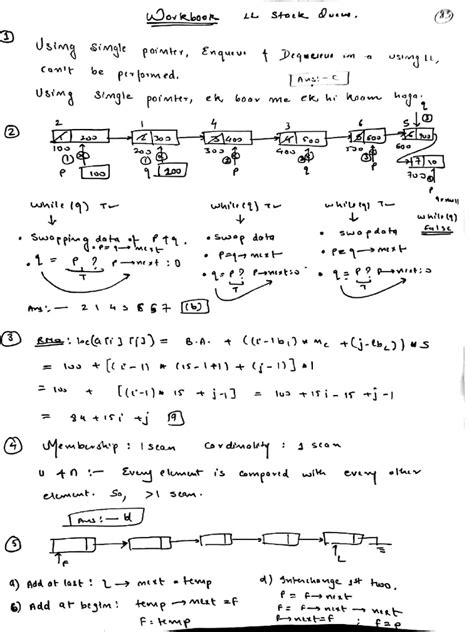 Workbook LL Stack Queue. 83
① Using single pointer, Enqueue & Dequeue in a using LL,
can't be performed. Ans:- C
Using single pointer, ek baar me ek hi kaam hoga.
②
2 1 4 3 6 5 q
200 300 400 500 600 700
100 200 300 400 500 600
7 10
P 100 q 200 P q P 700
P
q=null
while(q) T while(q) T while(q) T while(q)
False
• Swapping data of P & q. • swap data • swap data
• P=q→next • P=q→next • P=q→next
• q = P ? P→next : 0 • q = P ? P→next : 0 • q = P ? P→next : 0
T T T
Ans:- 2 1 4 3 6 5 7 (b)
③ RMO: loc(a[i][j]) = B.A. + ((i-lb₁) * nc + (j-lb₂)) * S
= 100 + [(i-1) * (15-1+1) + (j-1)] * 1
= 100 + [(i-1) * 15 + j-1] = 100 + 15i - 15 + j - 1
= 84 + 15i + j
④ Membership : 1 scan Cardinality : 1 scan
U & ∩ :- Every element is compared with every other
element. So, >1 scan.
Ans:- d
⑤
F L
a) Add at last : L → next = temp d) Interchange 1st two.
P = F→next
b) Add at begin: temp → next = F F→next = F→next → next
F = temp P→next = F ; F = P